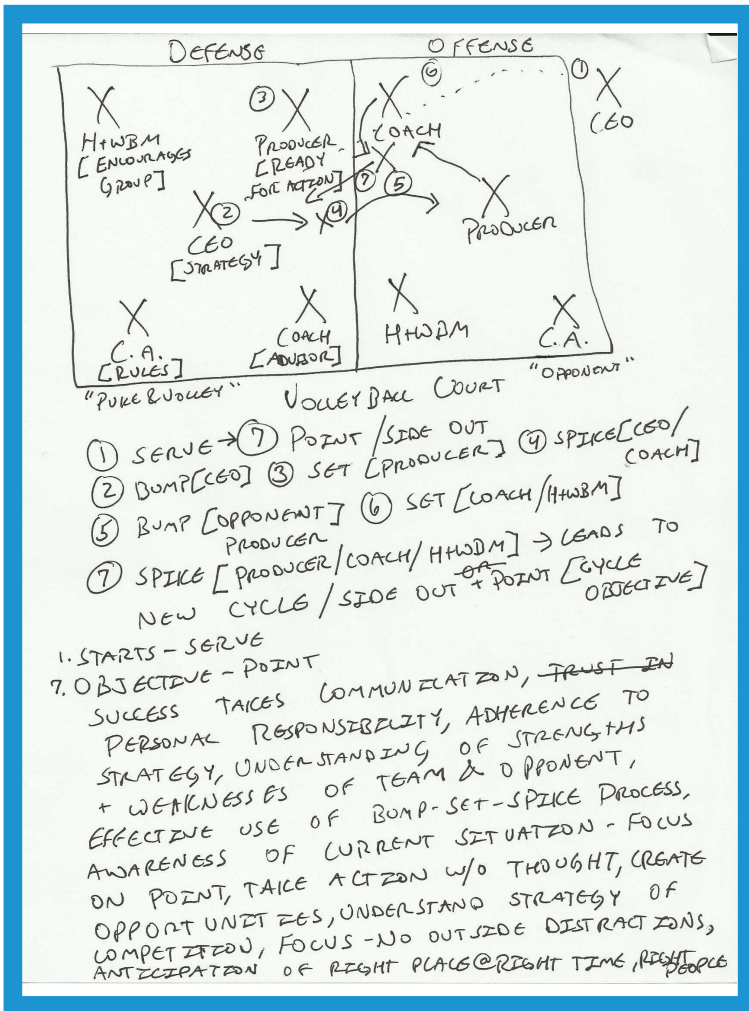 DEFENSE OFFENSE
① X CEO
⑥
X COACH
X H+WBM
[ENCOURAGES
GROUP]
③ X PRODUCER
[READY
FOR ACTION]
X ② CEO
[STRATEGY]
X ④
X ⑦ ⑤
X PRODUCER
X C.A.
[RULES]
X COACH
[ADVISOR]
X H+WBM
X C.A.
VOLLEYBALL COURT
"OPPONENT"
① SERVE → ⑦ POINT / SIDE OUT
② BUMP [CEO] ③ SET [PRODUCER] ④ SPIKE [CEO/
COACH]
⑤ BUMP [OPPONENT] ⑥ SET [COACH/H+WBM]
PRODUCER
⑦ SPIKE [PRODUCER/COACH/H+WBM] → LEADS TO
NEW CYCLE / SIDE OUT OR + POINT [CYCLE
OBJECTIVE]
1. STARTS - SERVE
7. OBJECTIVE - POINT
SUCCESS TAKES COMMUNICATION, TRUST IN
PERSONAL RESPONSIBILITY, ADHERENCE TO
STRATEGY, UNDERSTANDING OF STRENGTHS
+ WEAKNESSES OF TEAM & OPPONENT,
EFFECTIVE USE OF BUMP-SET-SPIKE PROCESS,
AWARENESS OF CURRENT SITUATION - FOCUS
ON POINT, TAKE ACTION W/O THOUGHT, CREATE
OPPORTUNITIES, UNDERSTAND STRATEGY OF
COMPETITION, FOCUS - NO OUTSIDE DISTRACTIONS,
ANTICIPATION OF RIGHT PLACE @ RIGHT TIME, RIGHT
PEOPLE